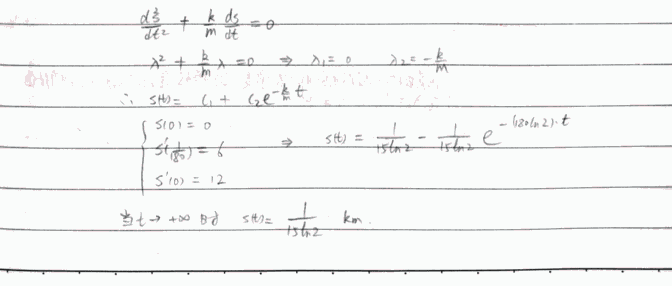 d²s/dt² + k/m ds/dt = 0
λ² + k/m λ = 0 ⇒ λ₁ = 0 λ₂ = -k/m
∴ s(t) = C₁ + C₂e^{-k/m t}
s(0) = 0
s'(1/180) = 6 ⇒ s(t) = 1/(15ln2) - 1/(15ln2) e^{-(180ln2)·t}
s'(0) = 12
当 t → +∞ 时 s(t) = 1/(15ln2) km.